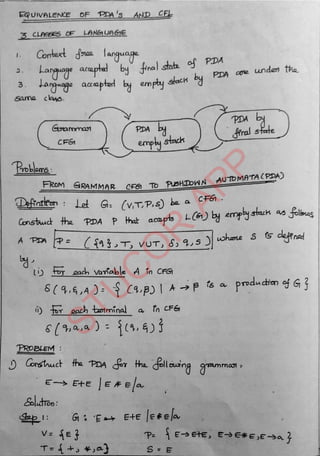 EQUIVALENCE OF PDA'S AND CFL
3 CLASSES OF LANGUAGE
1. Context free language
2. Language accepted by final state of PDA
3. Language accepted by empty stack by PDA are under the
same class.
Grammar
CFG
PDA by
empty stack
PDA by
final state
Problems:
FROM GRAMMAR CFG TO PUSHDOWN AUTOMATA (PDA)
Definition : Let G = (V,T,P,S) be a CFG.
Construct the PDA P that accepts L(G) by empty stack as follows
A PDA P = ({q}, T, VUT, δ, q, S) where δ is defined
by,
(i) For each variable A in CFG
δ(q,ε,A) = {(q,β) | A → β is a production of G}
ii) for each terminal a in CFG
δ(q,a,a) = {(q,ε)}
PROBLEM :
1) Construct the PDA for the following grammar,
E → E+E | E*E | a
Solution:
Step 1: G : E → E+E | E*E | a
V = {E} P = {E→E+E, E→E*E, E→a}
T = {+, *, a} S = E
STUCOR APP